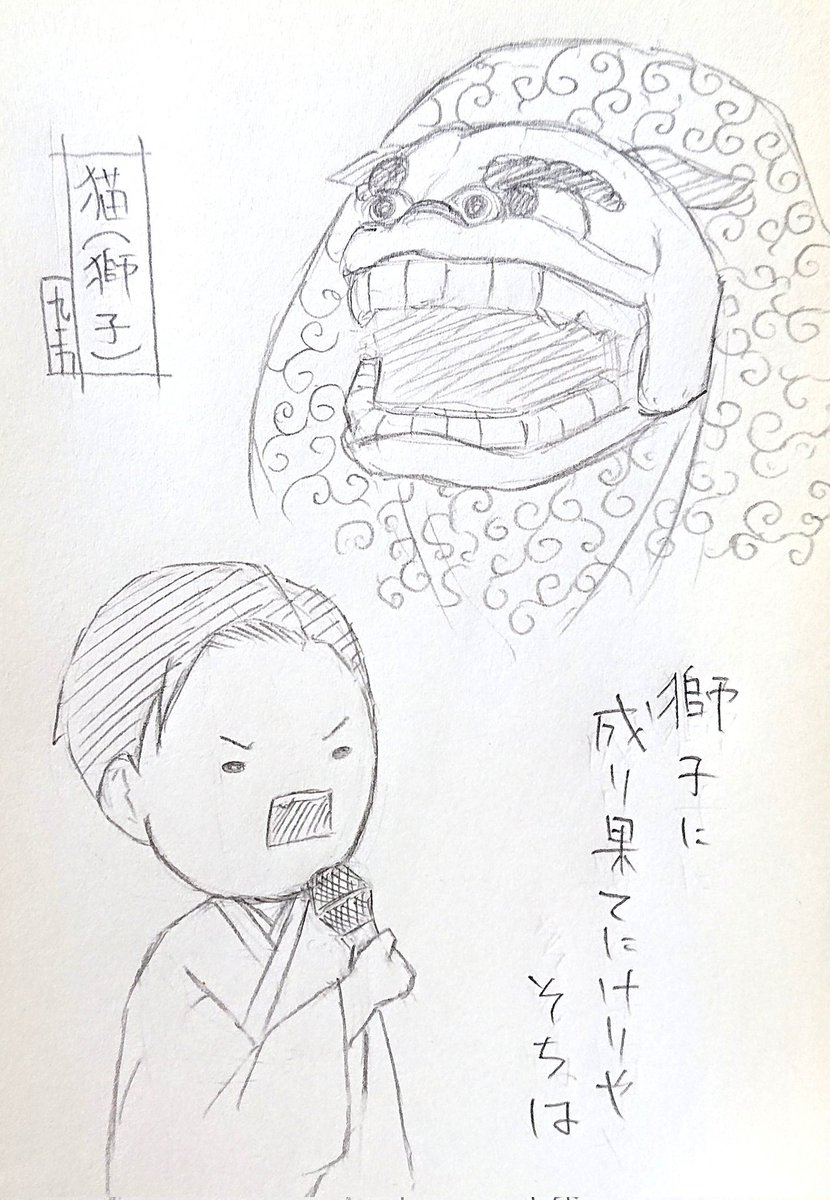 猫(獅子)
九十五
獅子に
成り果てにけりや
そちは